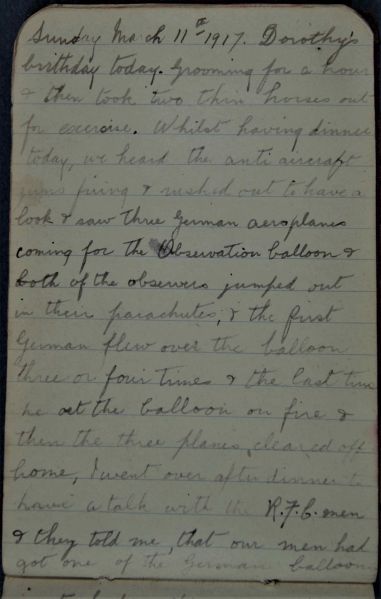 Sunday March 11th 1917. Dorothy's
birthday today. Grooming for a hour
& then took two thin horses out
for exercise. Whilst having dinner
today, we heard the anti aircraft
guns firing & rushed out to have a
look & saw three German aeroplanes
coming for the Observation balloon &
both of the observers jumped out
in their parachutes, & the first
German flew over the balloon
three or four times & the last time
he set the balloon on fire &
then the three planes, cleared off
home, I went over after dinner to
have a talk with the R.F.C. men
& they told me, that our men had
got one of the German balloon